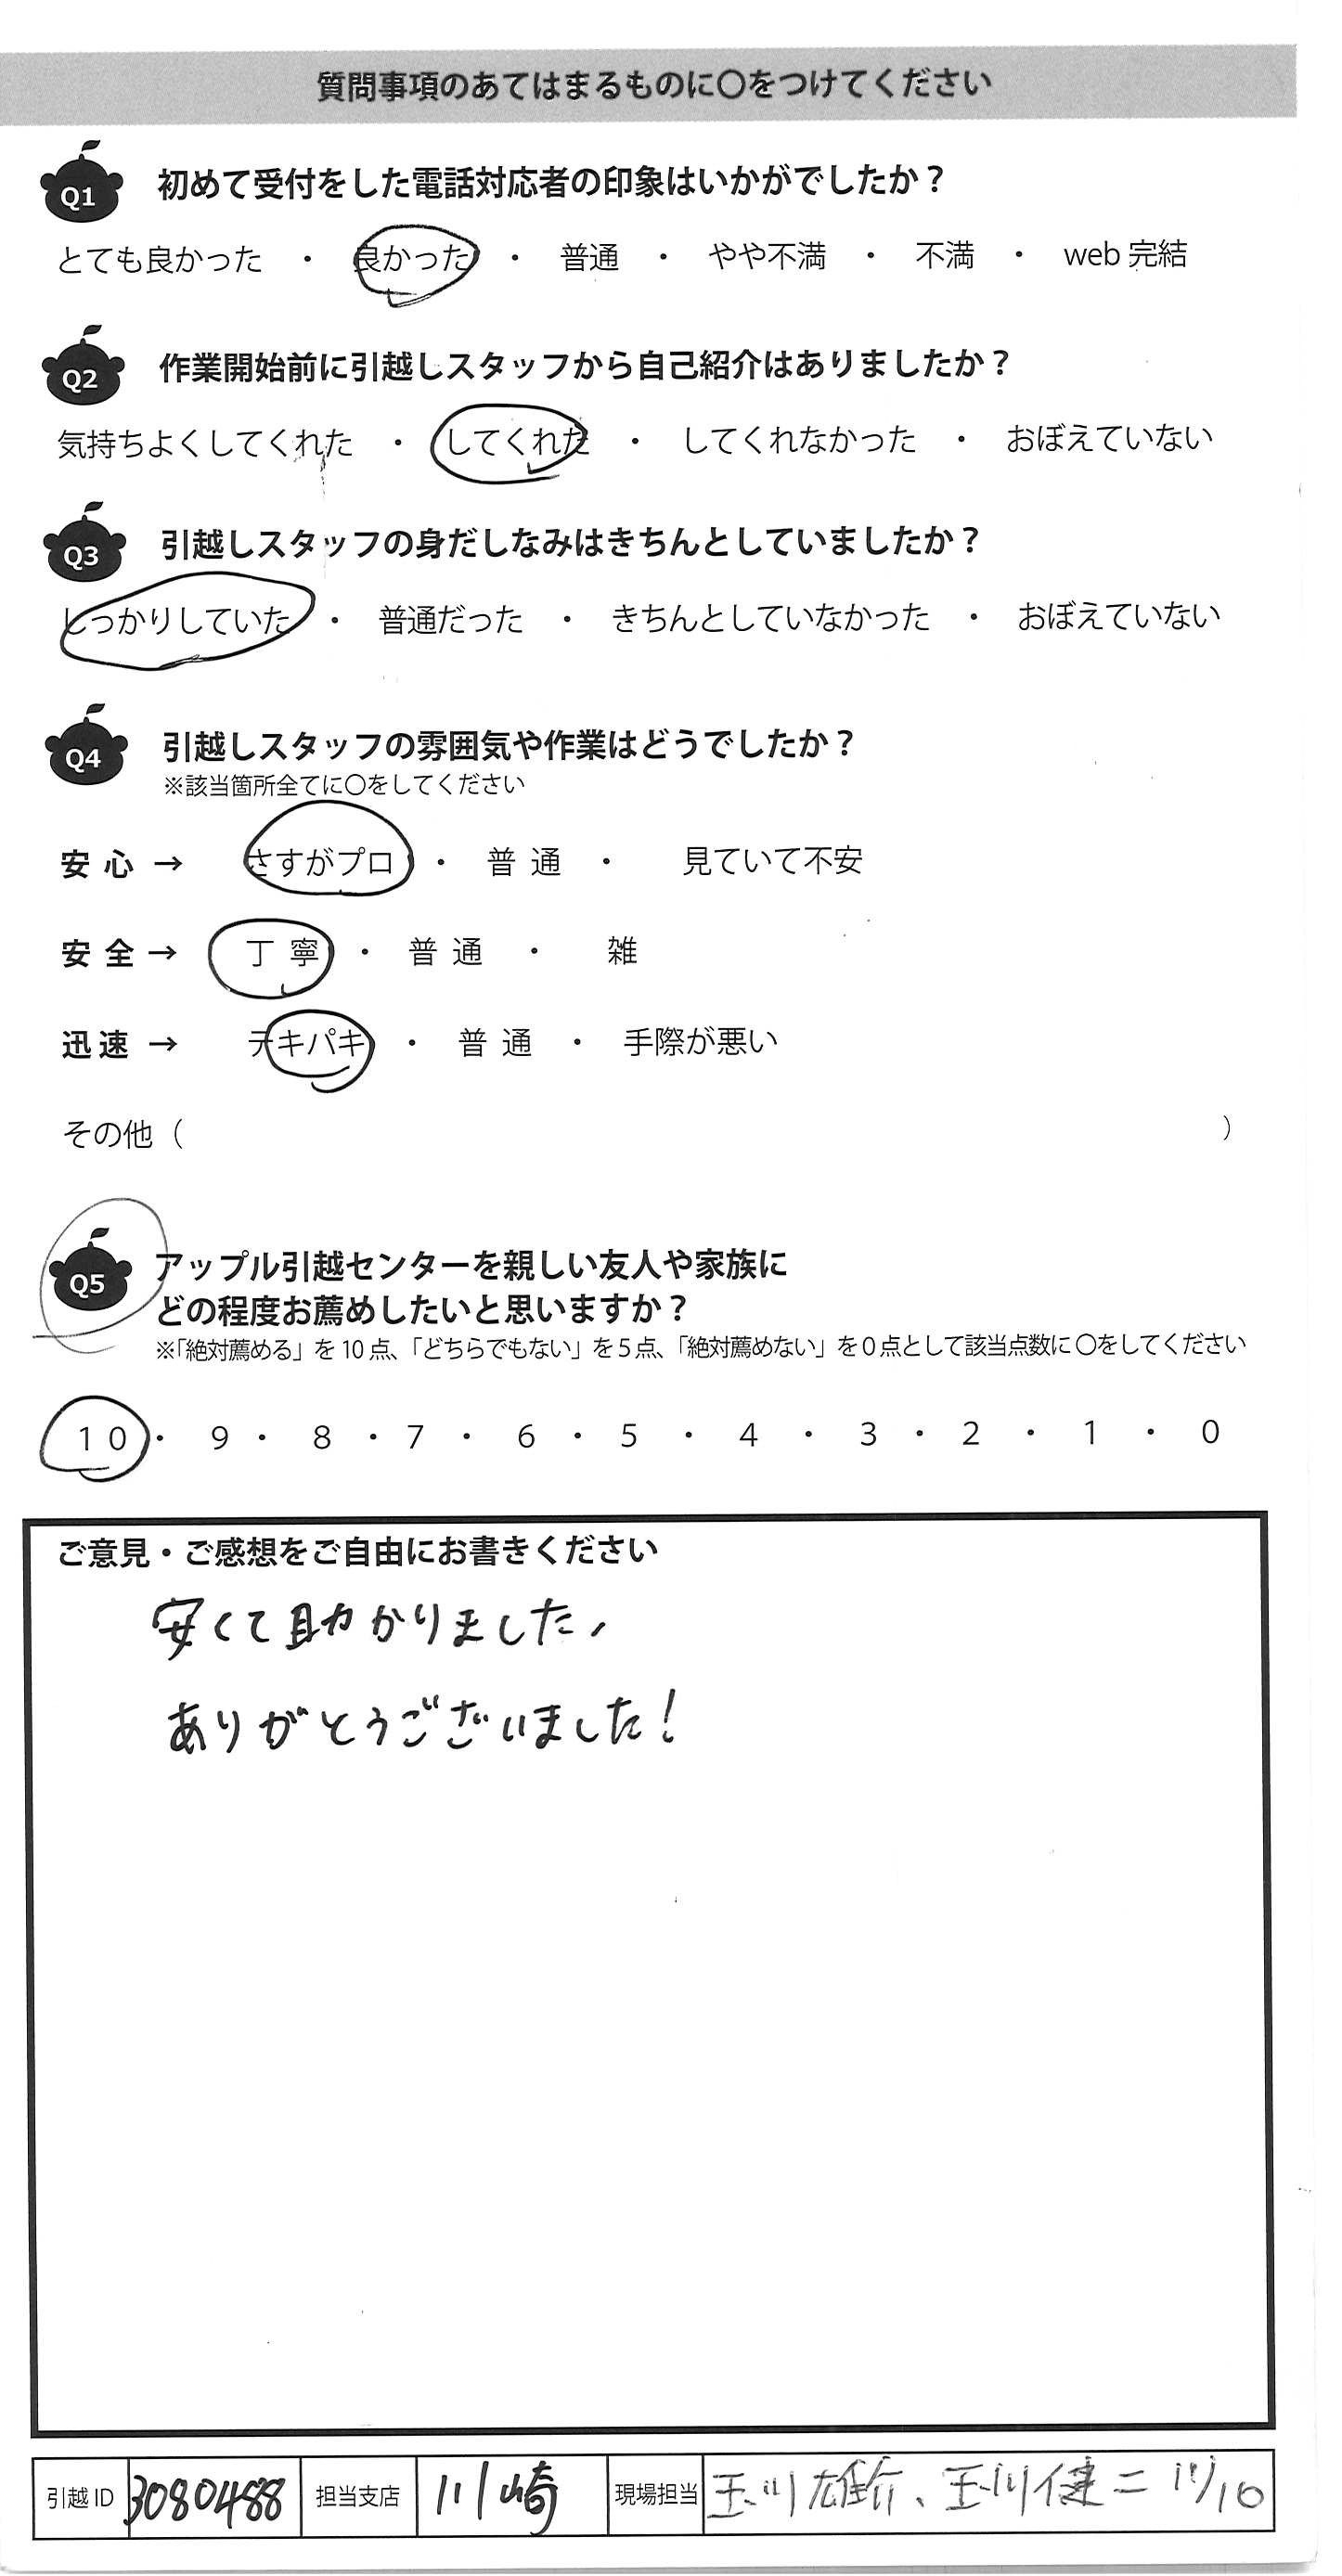 質問事項のあてはまるものに〇をつけてください
Q1 初めて受付をした電話対応者の印象はいかがでしたか？
とても良かった ・ 良かった ・ 普通 ・ やや不満 ・ 不満 ・ web 完結
Q2 作業開始前に引越しスタッフから自己紹介はありましたか？
気持ちよくしてくれた ・ してくれた ・ してくれなかった ・ おぼえていない
Q3 引越しスタッフの身だしなみはきちんとしていましたか？
しっかりしていた ・ 普通だった ・ きちんとしていなかった ・ おぼえていない
Q4 引越しスタッフの雰囲気や作業はどうでしたか？
※該当箇所全てに〇をしてください
安心 → さすがプロ ・ 普通 ・ 見ていて不安
安全 → 丁寧 ・ 普通 ・ 雑
迅速 → テキパキ ・ 普通 ・ 手際が悪い
その他（ ）
Q5 アップル引越センターを親しい友人や家族に
どの程度お薦めしたいと思いますか？
※「絶対薦める」を 10 点、「どちらでもない」を 5 点、「絶対薦めない」を 0 点として該当点数に 〇をしてください
10 ・ 9 ・ 8 ・ 7 ・ 6 ・ 5 ・ 4 ・ 3 ・ 2 ・ 1 ・ 0
ご意見・ご感想をご自由にお書きください
安くて助かりました、
ありがとうございました！
引越 ID 3080488 担当支店 川崎 現場担当 玉川雄介、玉川健二